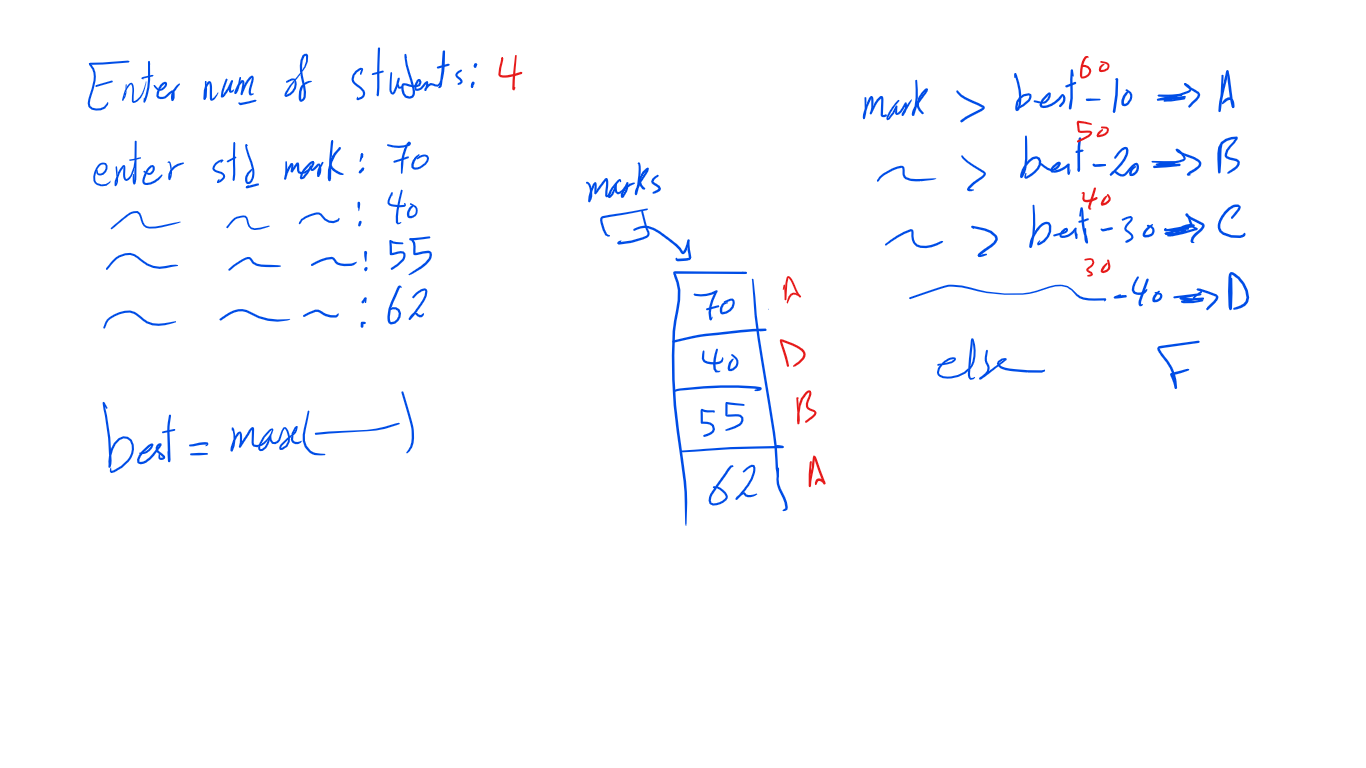 Enter num of students: 4
enter std mark: 70
: 40
: 55
: 62
best = max( )
marks
70 A
40 D
55 B
62 A
60
mark > best-10 => A
50
> best-20 => B
40
> best-30 => C
30
-40 => D
else F